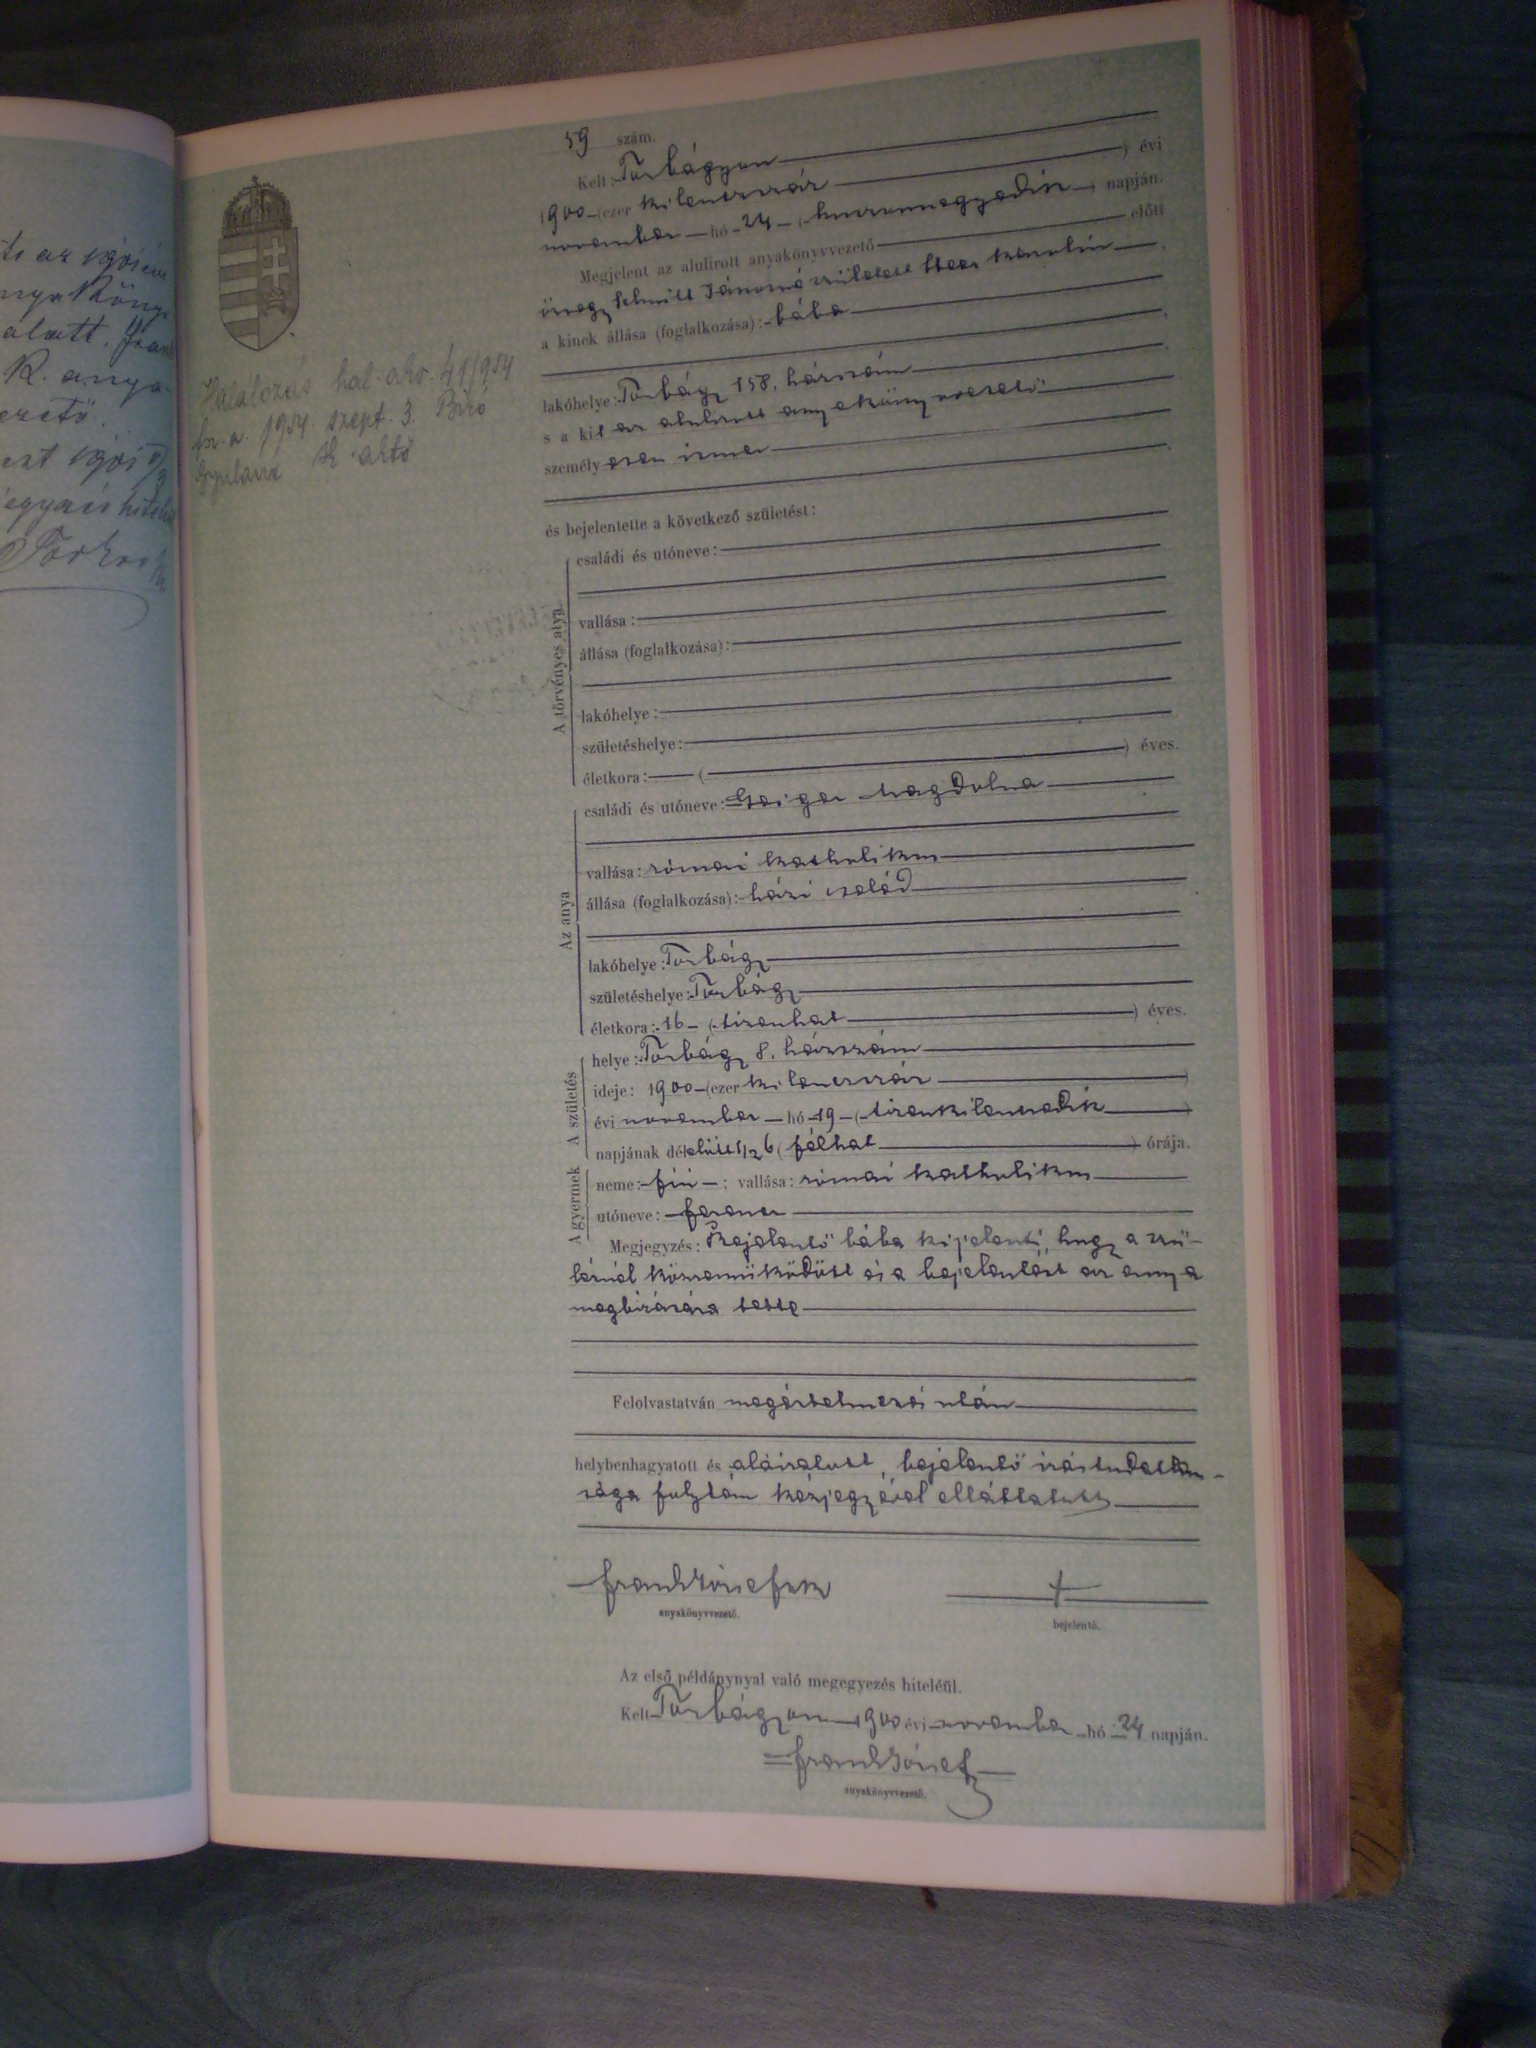 te az
nyaköny
alatt. Frank
K. anya-
ezt
egyzés hiteléül
59 szám.
Kelt: Torbágyon
1900 (ezer kilencszáz) évi
november hó 24 (huszonnegyedik) napján.
Megjelent az alulirott anyakönyvvezető előtt
özvegy Schmitt Jánosné született Karolin
a kinek állása (foglalkozása): bába
lakóhelye: Torbágy 158. házszám
s a kit az alulirott anyakönyvvezető
személyesen ismer
és bejelentette a következő születést:
A törvényes atya
családi és utóneve:
vallása:
állása (foglalkozása):
lakóhelye:
születéshelye:
életkora: ( ) éves.
Az anya
családi és utóneve: Geiger Magdolna
vallása: római katholikus
állása (foglalkozása): házi cseléd
lakóhelye: Torbágy
születéshelye: Torbágy
életkora: 16 (tizenhat) éves.
A születés
helye: Torbágy 8. házszám
ideje: 1900 (ezer kilencszáz)
évi november hó 19 (tizenkilencedik)
napjának délelőtt 1/2 6 (félhat) órája.
A gyermek
neme: fiú; vallása: római katholikus
utóneve: Ferencz
Megjegyzés: Bejelentő bába kijelenti, hogy a szü-
lésnél közreműködött és a bejelentést az anya
megbizására tette
Felolvastatván megértelmezés után
helybenhagyatott és aláiratott, bejelentő irástudatlan-
sága folytán kézjegyével elláttatott
Frank József sk
anyakönyvvezető.
+
bejelentő.
Az első példánynyal való megegyezés hiteléül.
Kelt Torbágyon 1900 évi november hó 24 napján.
Frank József
anyakönyvvezető.
Halálozás hal. akv. 41/954
fsz. a. 1954. szept. 3. Biró
Gyuláné